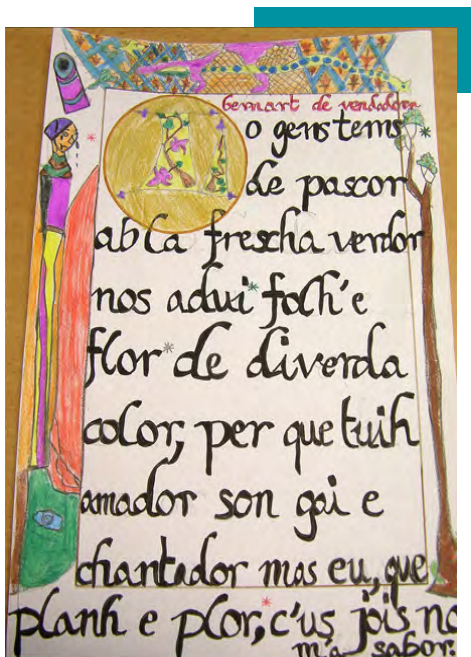 Bernart de vendadorn
Lo gens tems
de pascor
ab la frescha verdor
nos adui folh'e
flor de diverda
color, per que tuih
amador son gai e
chantador mas eu, que
planh e plor, c'us jois no
m'a sabor.